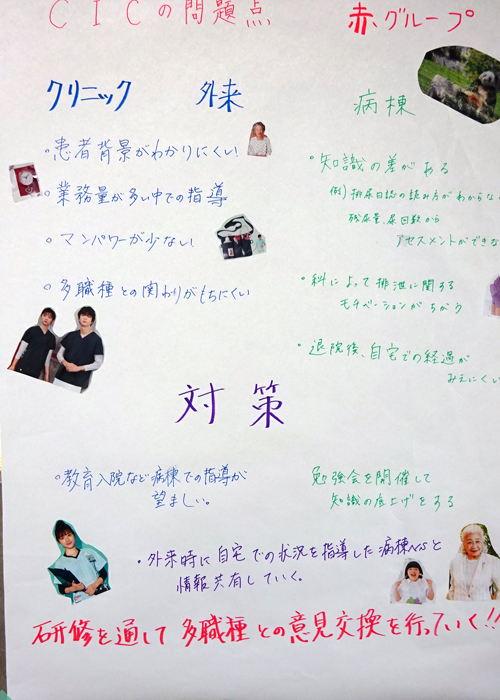 CICの問題点
赤グループ
クリニック 外来
・患者背景がわかりにくい
・業務量が多い中での指導
・マンパワーが少ない
・多職種との関わりがもちにくい
病棟
・知識の差がある
例)排尿日誌の読み方がわからな
残尿量、尿回数から
アセスメントができな
・科によって排泄に関する
モチベーションがちがう
・退院後、自宅での経過が
みえにくい
対策
・教育入院など病棟での指導が
望ましい。
勉強会を開催して
知識の底上げをする
・外来時に自宅での状況を指導した病棟Nsと
情報共有していく。
研修を通して多職種との意見交換を行っていく!!